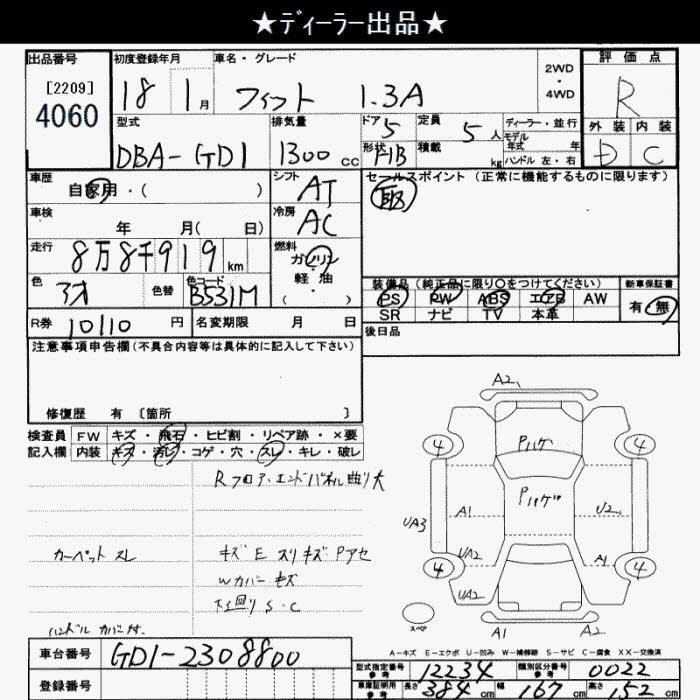 ★ディーラー出品★
出品番号 初度登録年月 車名・グレード 評価点
[2209]
4060
18 1月 フィット 1.3A 2WD・4WD R
型式 排気量 ドア 定員 ディーラー・並行 外装 内装
DBA-GD1 1300cc 5 5人 モデル年式 年 D C
形状 H/B 積載 kg ハンドル 左・右
車歴 自家用・( ) シフト AT セールスポイント (正常に機能するものに限ります)
車検 年 月( 日) 冷房 AC
走行 8万8千919km 燃料 ガソリン・軽油・( )
色 アオ 色替 色コード B531M
装備品(純正品に限り○をつけてください) 新車保証書
PS PW ABS エアB AW 有・無
SR ナビ TV 本革
R券 10110円 名変期限 月 日 後日品
注意事項申告欄(不具合内容等は具体的に記入して下さい)
修復歴 有 〔箇所 〕
検査員 FW キズ・飛石・ヒビ割・リペア跡・×要
記入欄 内装 キズ・汚レ・コゲ・穴・スレ・キレ・破レ
Rフロア・エンドパネル曲り大
カーペット スレ キズ E スリキズ Pアセ
Wカバー キズ
下廻り S・C
ハンドル カバー付
A2
4 4
Pハゲ
Pハゲ
A1 U2
UA3
UA2 A1
4 4
UA2
スペア
A1 A2
A-キズ E-エクボ U-凹み W-補修跡 S-サビ C-腐食 XX-交換済
車台番号 GD1-2308800
登録番号
型式指定番号 参考 12234 類別区分番号 参考 0022
車庫証明用 参考 長さ 384cm 幅 167cm 高さ 152cm